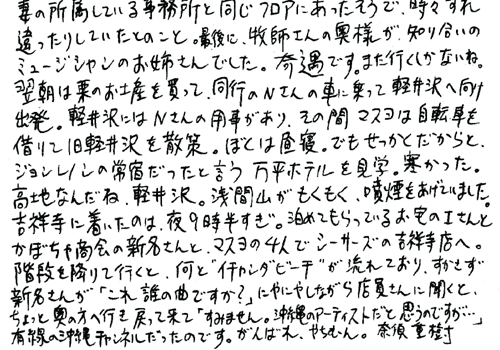 妻の所属している事務所と同じフロアにあったそうで、時々すれ
違ったりしていたとのこと。最後に、牧師さんの奥様が、知り合いの
ミュージシャンのお姉さんでした。奇遇です。また行くしかないね。
翌朝は栗のお土産を買って、同行のNさんの車に乗って軽井沢へ向け
出発。軽井沢にはNさんの用事があり、その間マスヨは自転車を
借りて旧軽井沢を散策。ぼくは昼寝。でもせっかくだからと、
ジョンレノンの常宿だったと言う万平ホテルを見学。寒かった。
高地なんだね、軽井沢。浅間山がもくもく、噴煙をあげていました。
吉祥寺に着いたのは、夜9時半すぎ。泊めてもらっているお宅のIさんと
かぼちゃ商会の新名さんと、マスヨの4人でシーサーズの吉祥寺店へ。
階段を降りて行くと、何と"イチャンダビーチ"が流れており、すかさず
新名さんが「これ誰の曲ですか?」にやにやしながら店員さんに聞くと、
ちょっと奥の方へ行き戻って来て「すみません。沖縄のアーティストだと思うのですが…」
有線の沖縄チャンネルだったのです。がんばれ、やちむん。奈須重樹